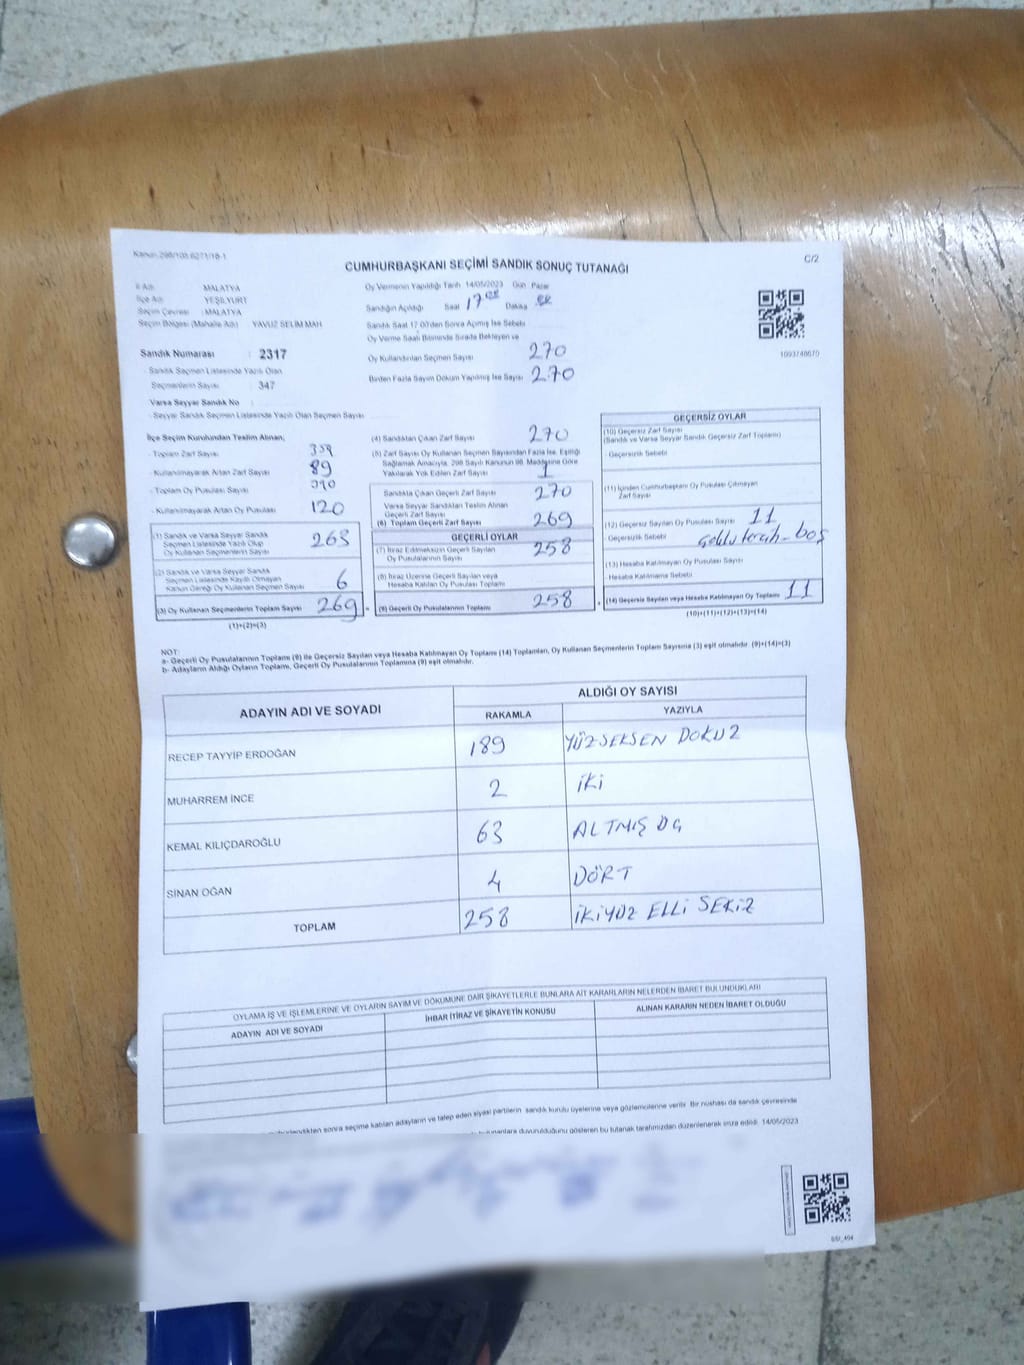 Kanun 298/105.6271/18-1
C/2
CUMHURBAŞKANI SEÇİMİ SANDIK SONUÇ TUTANAĞI
İl Adı : MALATYA
İlçe Adı : YEŞİLYURT
Seçim Çevresi : MALATYA
Seçim Bölgesi (Mahalle Adı) : YAVUZ SELİM MAH
Sandık Numarası : 2317
Sandık Seçmen Listesinde Yazılı Olan
Seçmenlerin Sayısı : 347
Varsa Seyyar Sandık No :
- Seyyar Sandık Seçmen Listesinde Yazılı Olan Seçmen Sayısı
Oy Vermenin Yapıldığı Tarih 14/05/2023 Gün Pazar
Sandığın Açıldığı Saat 17 Dakika
Sandık Saat 17.00'den Sonra Açılmış İse Sebebi
Oy Verme Saati Bitiminde Sırada Bekleyen ve
Oy Kullandırılan Seçmen Sayısı 270
Birden Fazla Sayım Döküm Yapılmış İse Sayısı 270
1093748670
İlçe Seçim Kurulundan Teslim Alınan;
- Toplam Zarf Sayısı 359
- Kullanılmayarak Artan Zarf Sayısı 89
- Toplam Oy Pusulası Sayısı 390
- Kullanılmayarak Artan Oy Pusulası 120
(1) Sandık ve Varsa Seyyar Sandık
Seçmen Listesinde Yazılı Olup
Oy Kullanan Seçmenlerin Sayısı 263
(2) Sandık ve Varsa Seyyar Sandık
Seçmen Listesinde Kayıtlı Olmayan
Kanun Gereği Oy Kullanan Seçmen Sayısı 6
(3) Oy Kullanan Seçmenlerin Toplam Sayısı 269 =
(1)+(2)=(3)
(4) Sandıktan Çıkan Zarf Sayısı 270
(5) Zarf Sayısı Oy Kullanan Seçmen Sayısından Fazla İse, Eşitliği
Sağlamak Amacıyla, 298 Sayılı Kanunun 98. Maddesine Göre
Yakılarak Yok Edilen Zarf Sayısı 1
Sandıkta Çıkan Geçerli Zarf Sayısı 270
Varsa Seyyar Sandıktan Teslim Alınan
Geçerli Zarf Sayısı
(6) Toplam Geçerli Zarf Sayısı 269
GEÇERLİ OYLAR
(7) İtiraz Edilmeksizin Geçerli Sayılan
Oy Pusulalarının Sayısı 258
(8) İtiraz Üzerine Geçerli Sayılan veya
Hesaba Katılan Oy Pusulası Toplamı
(9) Geçerli Oy Pusulalarının Toplamı 258 +
GEÇERSİZ OYLAR
(10) Geçersiz Zarf Sayısı
(Sandık ve Varsa Seyyar Sandık Geçersiz Zarf Toplamı)
- Geçersizlik Sebebi
(11) İçinden Cumhurbaşkanı Oy Pusulası Çıkmayan
Zarf Sayısı
(12) Geçersiz Sayılan Oy Pusulası Sayısı 11
- Geçersizlik Sebebi boş
(13) Hesaba Katılmayan Oy Pusulası Sayısı
Hesaba Katılmama Sebebi
(14) Geçersiz Sayılan veya Hesaba Katılmayan Oy Toplamı 11
(10)+(11)+(12)+(13)=(14)
NOT:
a- Geçerli Oy Pusulalarının Toplamı (9) ile Geçersiz Sayılan veya Hesaba Katılmayan Oy Toplamı (14) Toplamları, Oy Kullanan Seçmenlerin Toplam Sayısına (3) eşit olmalıdır. (9)+(14)=(3)
b- Adayların Aldığı Oyların Toplamı, Geçerli Oy Pusulalarının Toplamına (9) eşit olmalıdır.
ADAYIN ADI VE SOYADI
ALDIĞI OY SAYISI
RAKAMLA YAZIYLA
RECEP TAYYİP ERDOĞAN 189 YÜZSEKSEN DOKUZ
MUHARREM İNCE 2 İKİ
KEMAL KILIÇDAROĞLU 63 ALTMIŞ ÜÇ
SİNAN OĞAN 4 DÖRT
TOPLAM 258 İKİYÜZ ELLİ SEKİZ
OYLAMA İŞ VE İŞLEMLERİNE VE OYLARIN SAYIM VE DÖKÜMÜNE DAİR ŞİKAYETLERLE BUNLARA AİT KARARLARIN NELERDEN İBARET BULUNDUKLARI
ADAYIN ADI VE SOYADI
İHBAR İTİRAZ VE ŞİKAYETİN KONUSU
ALINAN KARARIN NEDEN İBARET OLDUĞU
sonra seçime katılan adayların ve talep eden siyasi partilerin sandık kurulu üyelerine veya gözlemcilerine verilir. Bir nüshası da sandık çevresinde
duyurulduğunu gösteren bu tutanak tarafımızdan düzenlenerek imza edildi. 14/05/2023